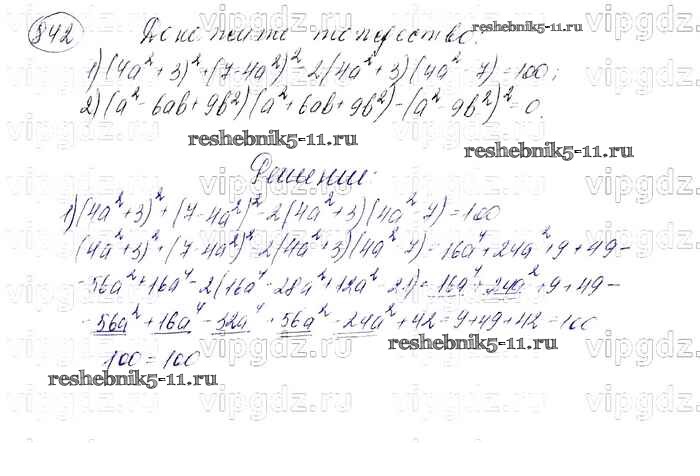 842 Докажите тождество:
1) (4a² + 3)² + (7 - 4a²)² - 2(4a² + 3)(4a² - 7) = 100;
2) (a² - 6ab + 9b²)(a² + 6ab + 9b²) - (a² - 9b²)² = 0.
reshebnik5-11.ru
reshebnik5-11.ru
reshebnik5-11.ru
Решение:
1) (4a² + 3)² + (7 - 4a²)² - 2(4a² + 3)(4a² - 7) = 100
(4a² + 3)² + (7 - 4a²)² - 2(4a² + 3)(4a² - 7) = 16a⁴ + 24a² + 9 + 49 -
- 56a² + 16a⁴ - 2(16a⁴ - 28a² + 12a² - 21) = 16a⁴ + 24a² + 9 + 49 -
- 56a² + 16a⁴ - 32a⁴ + 56a² - 24a² + 42 = 9 + 49 + 42 = 100
100 = 100
reshebnik5-11.ru
reshebnik5-11.ru
vipgdz.ru